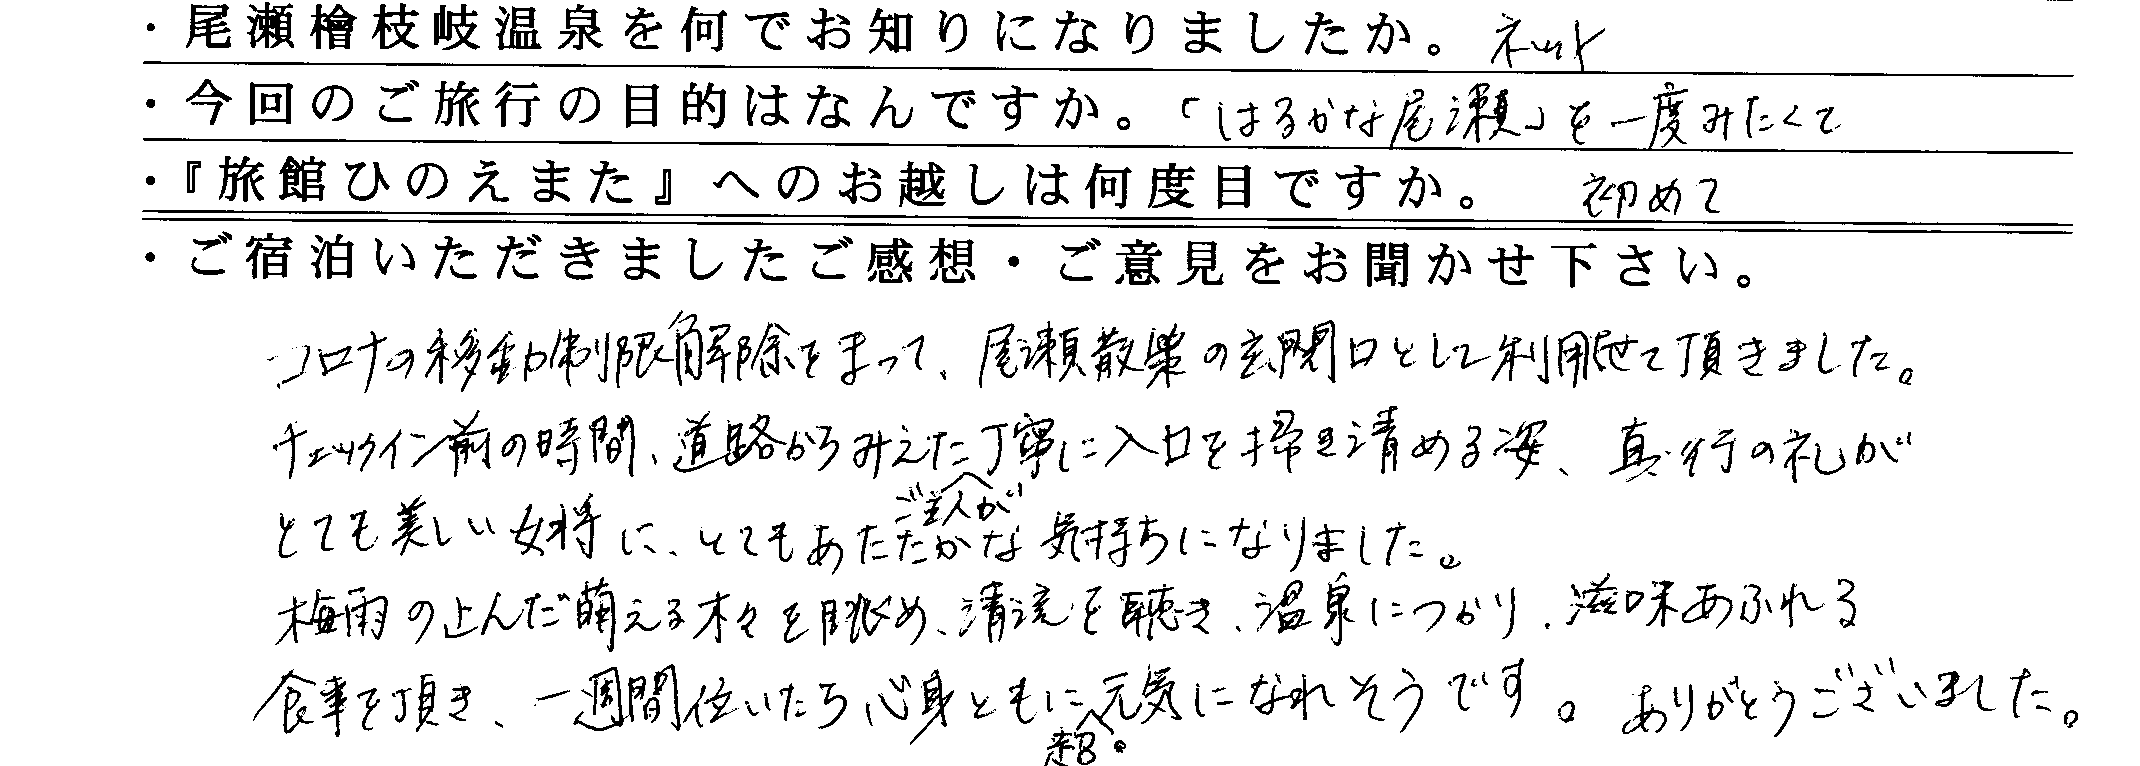 ・尾瀬檜枝岐温泉を何でお知りになりましたか。 ネット
・今回のご旅行の目的はなんですか。「はるかな尾瀬」を一度みたくて
・『旅館ひのえまた』へのお越しは何度目ですか。 初めて
・ご宿泊いただきましたご感想・ご意見をお聞かせ下さい。
コロナの移動制限解除をまって、尾瀬散策の玄関口として利用させて頂きました。
チェックイン前の時間、道路からみえた丁寧に入口を掃き清める姿、真・行の礼が
ご主人が
とても美しい女将に、とてもあたたかな気持ちになりました。
梅雨の止んだ萌える木々を眺め、清流を聴き、温泉につかり、滋味あふれる
食事を頂き、一週間位いたら心身ともに元気になれそうです。ありがとうございました。
超。